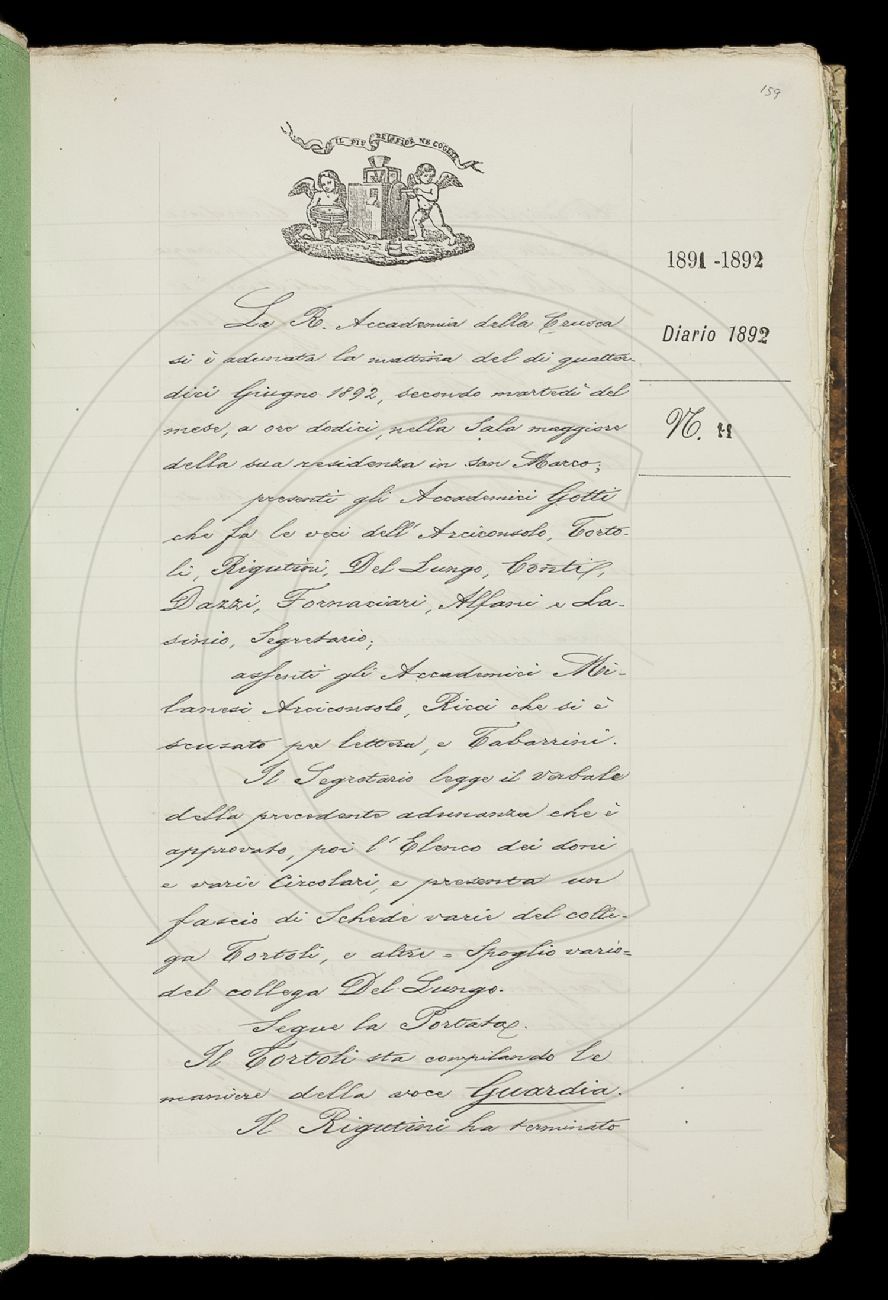 159
IL PIÙ BEL FIOR NE COGLIE
1891-1892
Diario 1892
N. 11
La R. Accademia della Crusca
si è adunata la mattina del dì quattor-
dici Giugno 1892, secondo martedì del
mese, a ore dodici, nella Sala maggiore
della sua residenza in san Marco;
presenti gli Accademici Gotti
che fa le veci dell'Arciconsolo, Torto-
li, Rigutini, Del Lungo, Conti,
Dazzi, Fornaciari, Alfani e La-
sinio, Segretario;
assenti gli Accademici Mi-
lanesi Arciconsolo, Ricci che si è
scusato per lettera, e Tabarrini.
Il Segretario legge il verbale
della precedente adunanza che è
approvato, poi l'Elenco dei doni
e varie Circolari, e presenta un
fascio di Schede varie del colle-
ga Tortoli, e altri = Spoglio vario =
del collega Del Lungo.
Segue la Portata.
Il Tortoli sta compilando le
maniere della voce Guardia.
Il Rigutini ha terminato